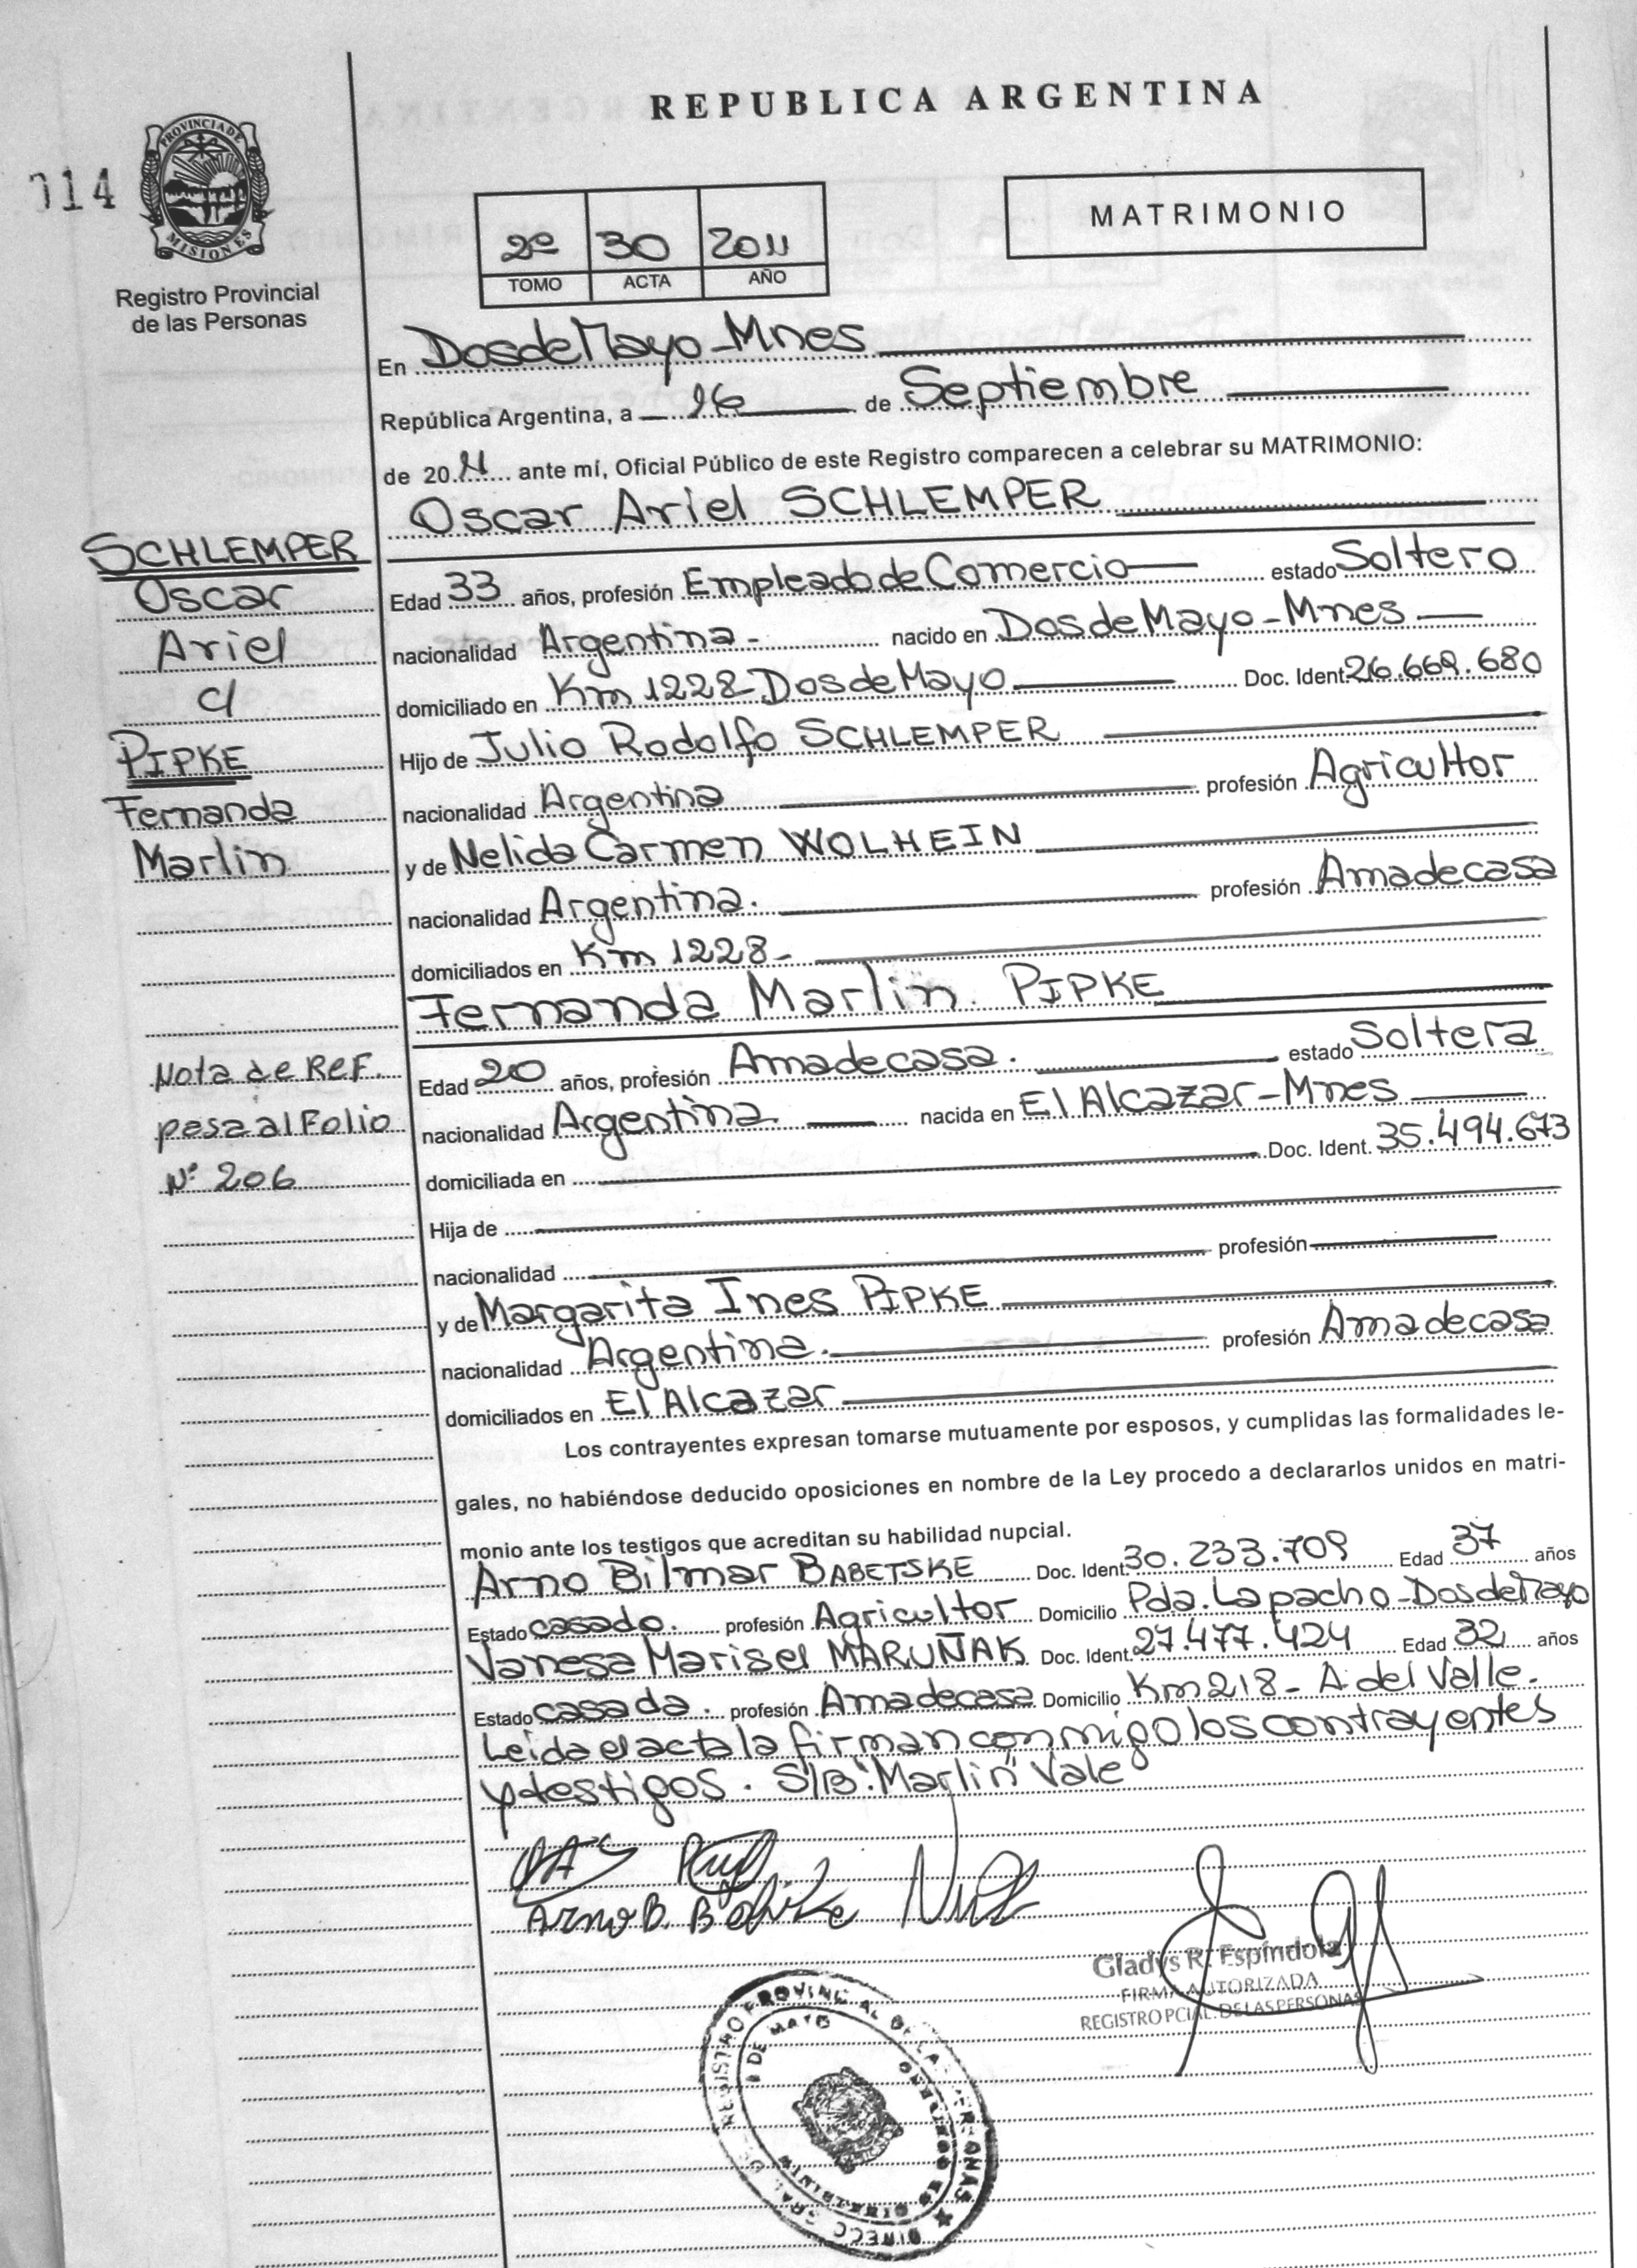 REPUBLICA ARGENTINA
014
PROVINCIA DE
MISIONES
Registro Provincial
de las Personas
2º 30 2011
TOMO ACTA AÑO
MATRIMONIO
En Dos de Mayo - Mnes
República Argentina, a 16 de Septiembre
de 2011 ante mí, Oficial Público de este Registro comparecen a celebrar su MATRIMONIO:
Oscar Ariel SCHLEMPER
SCHLEMPER
Oscar
Ariel
c/
PIPKE
Fernanda
Marlin
Edad 33 años, profesión Empleado de Comercio estado Soltero
nacionalidad Argentina - nacido en Dos de Mayo - Mnes
domiciliado en Km 1228 Dos de Mayo Doc. Ident. 26.669.680
Hijo de Julio Rodolfo SCHLEMPER
nacionalidad Argentina profesión Agricultor
y de Nelida Carmen WOLHEIN
nacionalidad Argentina. profesión Ama de casa
domiciliados en Km 1228 -
Fernanda Marlin PIPKE
Nota de Ref.
pasa al Folio
Nº 206
Edad 20 años, profesión Ama de casa. estado Soltera
nacionalidad Argentina nacida en El Alcazar - Mnes
domiciliada en Doc. Ident. 35.494.673
Hija de
nacionalidad profesión
y de Margarita Ines PIPKE
nacionalidad Argentina. profesión Ama de casa
domiciliados en El Alcazar
Los contrayentes expresan tomarse mutuamente por esposos, y cumplidas las formalidades le-
gales, no habiéndose deducido oposiciones en nombre de la Ley procedo a declararlos unidos en matri-
monio ante los testigos que acreditan su habilidad nupcial.
Arno Bilmar BABETSKE Doc. Ident. 30.233.709 Edad 37 años
Estado casado. profesión Agricultor Domicilio Pda. Lapacho - Dos de Mayo
Vanesa Marisel MARUÑAK Doc. Ident. 27.477.424 Edad 32 años
Estado casada. profesión Ama de casa Domicilio Km 218 - A. del Valle.
Leida el acta la firman conmigo los contrayentes
y testigos. S/B: "Marlin" Vale
Arno B.
Gladys R. Espíndola
FIRMA AUTORIZADA
REGISTRO PCIAL. DE LAS PERSONAS
DIRECC. GRAL. DE REGISTRO PROVINCIAL DE LAS PERSONAS
DE MAYO